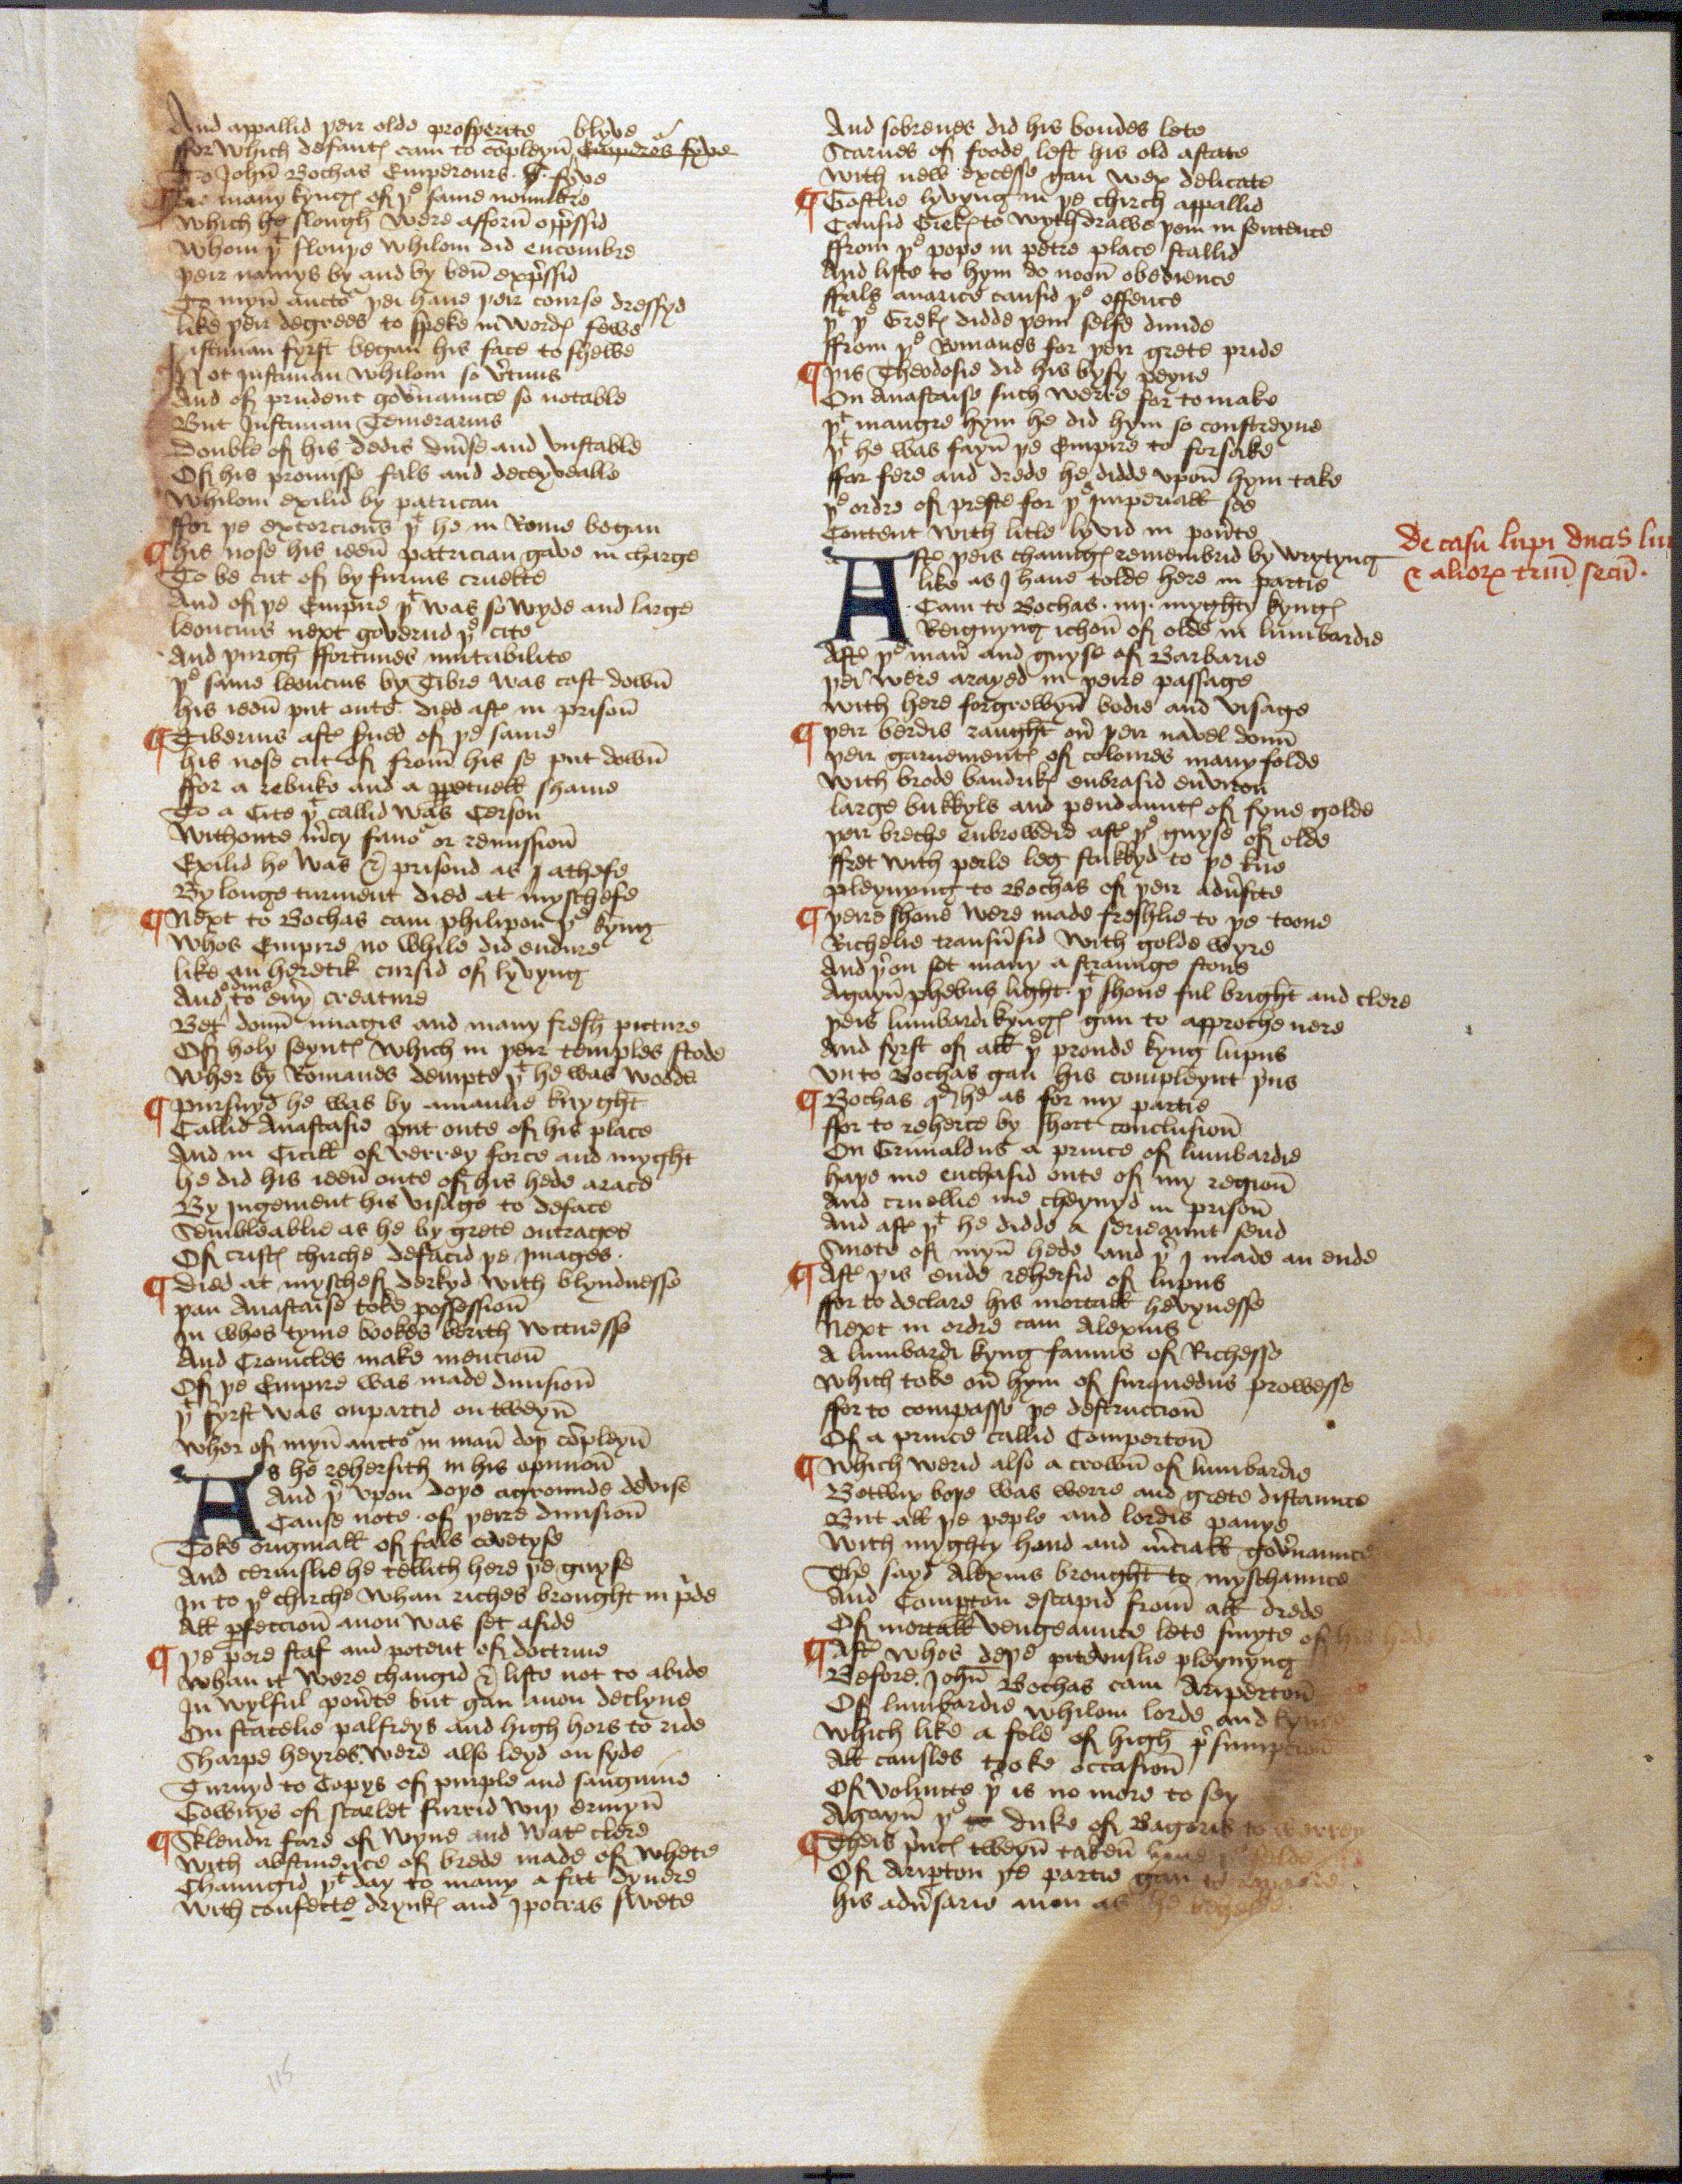 And appallid þeir olde prosperite blyve
ffor which defautꝭ cam to cōpleyn̄ Emperos fyve
To John̄ Bochas Emperours v. fyve
many kyngꝭ of þe same noumbre
Which he slough were afforn̄ opp̄ssid
Whom þt slouþe whilom did encombre
þeir namys by and by ben̄ exp̄ssid
To myn̄ auctor þei haue þeir course dressyd
like þeir degrees to speke in wordꝭ fewe
Justinian fyrst began his face to shewe
Not Justinian whilom so v̄tuus
And of prudent gov̄naunce so notable
But Justinian Temerarius
Double of his dedis diūse and vnstable
Of his promisse fals and deceyveable
Whilom exilid by patrican
ffor þe extorcions þt he in Rome began
¶ his nose his ieen̄ patrician gave in charge
To be cut of by furius cruelte
And of þe Empire þt was so wyde and large
leoncius next governd þe cite
And þurgh ffortunes mutabilite
þe same leoncius by Tibre was cast down̄
his ieen̄ put oute died aft̄ in prison̄
¶ Tiberius aft̄ sued of þe same
his nose cut of from̄ his se put down̄
ffor a rebuke and a ꝑpetuell shame
To a Cite þt callid was Cerson
Withoute m̄cy fauor or remission̄
Exilid he was & prisond as j athefe
By longe turment died at myschefe
¶ Next to Bochas cam philipon þe kyng
Whos Empire no while did endure
like an heretik cursid of lyvyng
And odius to eūy creature
Bet doun̄ imagis and many fresh picture
Of holy seyntꝭ which in þeir temples stode
Wher by Romanes dempte þt he was woode
¶ Pursuyd he was by amanlie knyght
Callid Anastasie put oute of his place
And in Cicill of verrey force and myght
he did his ieen̄ oute of his hede arace
By jugement his visage to deface
Semblablie as he by grete outrages
Of cristꝭ chirche defacid þe jmages.
¶ Died at myschef derkyd with blyndnesse
þan Anastaise toke possession̄
In whos tyme bookes berith witnesse
And Cronicles make mencion̄
Of þe Empire was made diuision̄
þt fyrst was onpartid on tweyn̄
Wher of myn̄ auctor in man̄ doþ cōpleyn̄
As he rehersith in his opinion̄
And þ̄ vpon doþe agrounde devise
Cause note of þeire diuision̄
Toke originall of fals covetyse
And ceriuslie he tellith here þe guyse
In to þe chirche whan riches brought in p̄de
All ꝑfeccion̄ anon was set aside
¶ þe pore staf and potent of doctrine
Whan it were changid & liste not to abide
In wylful poūte but gan anon declyne
On statelie palfreys and high hors to ride
Sharpe heyres were also leyd on syde
Turnyd to Copys of purple and sanguine
Gownys of scarlet furrid wiþ ermyn̄
¶ Sklendir fare of wyne and wat̄ clere
With abstinence of brede made of whete
Chaungid þt day to many a fat dynere
With confecte drynkꝭ and jpocras swete
And sobrenes did his boundes lete
Scarnes of foode left his old astate
With new excesse gan wex delicate
¶ Gostlie lyvyng in þe chirch appallid
Causid Grekꝭ to wythdrawe þem in sentence
ffrom þe pope in petre place stallid
And liste to hym do noon̄ obedience
ffals avarice causid þe offence
þt þe Grekꝭ didde þem selfe diuide
ffrom þe Romanes for þeir grete pride
¶ þis Theodosie did his bysy peyne
On Anastaise such werre for to make
þt maugre hym he did hym so constreyne
þt he was fayn̄ þe Empire to forsake
ffor fere and drede he didde vpon̄ hym take
þe ordre of preste for þe jmperiall see
Content with litle lyvid in poūte
Aft̄ þeis chaungꝭ remembrid by wrytyng
like as J haue tolde here in partie
Cam to Bochas .iiij. myghty kyngꝭ
Reignyng ichon̄ of olde in lumbardie
Aft̄ þe man̄ and guyse of Barbarie
þei were arayed in þeire passage
With here forgrowyn̄ bodie and visage
¶ þeir berdis raught on̄ þeir navel doun̄
þeir garnementꝭ of coloures many folde
With brode baudrikꝭ enbrasid envuon
large bukkyls and pendauntꝭ of fyne golde
þeir breche enbrowdid aft̄ þe guyse of olde
ffret with perle leg stukkyd to þe kne
Pleynyng to Bochas of þeir adūsite
¶ þeire shone were made freshlie to þe toone
Richelie transūsid with golde wyre
And þ̄on set many a straunge stone
Agayn̄ phebus light þt shone ful bright and clere
þeis lumbardi kyngꝭ gan to approche nere
And fyrst of all þe proude kyng lupus
Vnto Bochas gan his compleynt þus
¶ Bochas qd he as for my partie
ffor to reherce by short conclusion̄
On Grimaldus a prince of lumbardie
haþe me enchasid oute of my region̄
And cruellie me cheynyd in prison̄
And aft̄ þt he didde a serieaunt send
Smote of myn̄ hede and þ̄ j made an ende
¶ Aft̄ þis ende rehersid of lupus
ffor to declare his mortall hevynesse
Next in ordre cam Alexius
A lumbardi kyng famus of Richesse
Which toke on̄ hym of surquedus prowesse
ffor to compasse þe destruccion̄
Of a prince callid Comperton̄
¶ Which werid also a crown̄ of lumbardie
Betwix boþe was werre and grete distaunce
But all þe peple and lordis panye
With myghty hand and m̄ciall gov̄naunce
The sayd Alexius brought to myschaunce
And Comꝑton escapid from̄ all drede
Of mortall vengeaunce lete smyte of his hede
¶ Aft̄ whos deþe pitevuslie pleynyng
Before John̄ Bochas cam Ariperton̄
Of lumbardie whilom lorde and kyng
Which like a fole of high p̄sumpcion̄
All causles tooke occasion̄
Of volunte þ̄ is no more to sey
Agayn̄ þe duke of Bagoris to werrey
¶ Theis p̄ncꝭ tweyn̄ taken̄ haue þe felde
Of Ariꝑton þe partie gan
his adūsarie anon as he
De casu lupi ducis lu
& aliorꝝ triū secū.
115